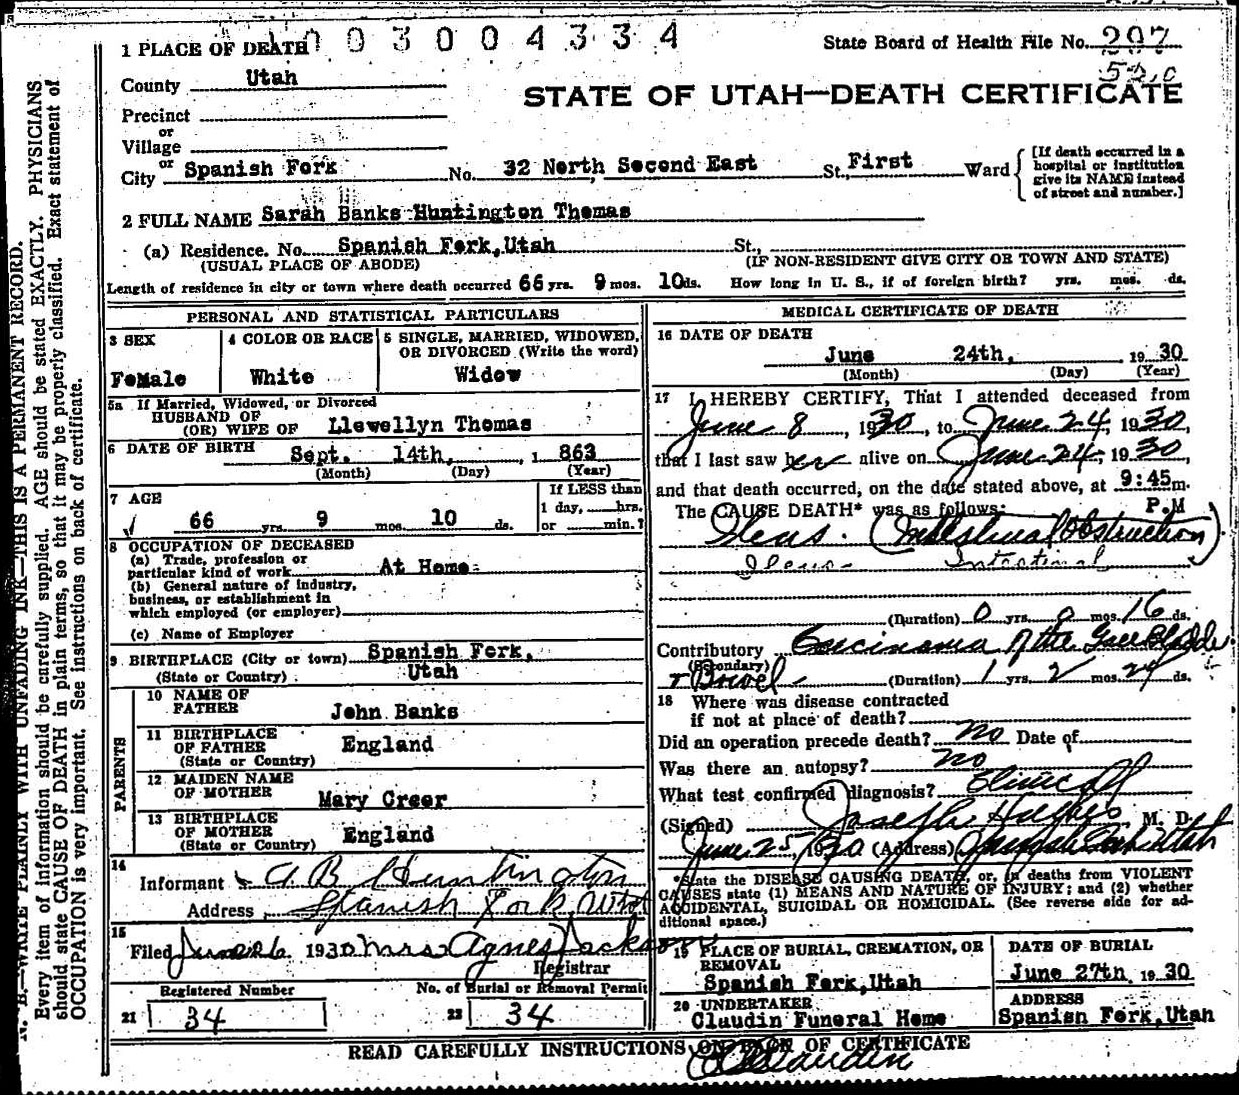 003004334
State Board of Health File No. 297
52.0
1 PLACE OF DEATH
County Utah
STATE OF UTAH—DEATH CERTIFICATE
Precinct
or
Village
or
City Spanish Fork No. 32 North Second East St., First Ward
[If death occurred in a hospital or institution give its NAME instead of street and number.]
2 FULL NAME Sarah Banks Huntington Thomas
(a) Residence. No. Spanish Fork, Utah St.,
(USUAL PLACE OF ABODE) (IF NON-RESIDENT GIVE CITY OR TOWN AND STATE)
Length of residence in city or town where death occurred 66 yrs. 9 mos. 10 ds. How long in U. S., if of foreign birth? yrs. mos. ds.
PERSONAL AND STATISTICAL PARTICULARS
3 SEX
FeMale
4 COLOR OR RACE
White
5 SINGLE, MARRIED, WIDOWED, OR DIVORCED (Write the word)
Widow
5a If Married, Widowed, or Divorced
HUSBAND OF
(OR) WIFE OF Llewellyn Thomas
6 DATE OF BIRTH Sept. 14th, 1 863
(Month) (Day) (Year)
7 AGE
66 yrs. 9 mos. 10 ds.
If LESS than
1 day, hrs.
or min.?
8 OCCUPATION OF DECEASED
(a) Trade, profession or
particular kind of work At Home
(b) General nature of industry,
business, or establishment in
which employed (or employer)
(c) Name of Employer
9 BIRTHPLACE (City or town) Spanish Fork,
(State or Country) Utah
PARENTS
10 NAME OF
FATHER John Banks
11 BIRTHPLACE
OF FATHER England
(State or Country)
12 MAIDEN NAME
OF MOTHER Mary Creer
13 BIRTHPLACE
OF MOTHER England
(State or Country)
14
Informant A B Huntington
Address Spanish Fork Utah
15
Filed June 26 1930 Mrs Agnes Jackson
Registrar
Registered Number
21 34
No. of Burial or Removal Permit
22 34
MEDICAL CERTIFICATE OF DEATH
16 DATE OF DEATH
June 24th, 19 30
(Month) (Day) (Year)
17 I HEREBY CERTIFY, That I attended deceased from
June 8, 1930, to June 24, 1930,
that I last saw her alive on June 24, 1930,
and that death occurred, on the date stated above, at 9:45 m.
P.M
The CAUSE DEATH* was as follows:
Ileus. (Intestinal Obstruction)
Ileus Intestinal
(Duration) 0 yrs. 0 mos. 16 ds.
Contributory Carcinoma of the Gall Bladder
(Secondary)
& Bowel (Duration) 1 yrs. 2 mos. 24 ds.
18 Where was disease contracted
if not at place of death?
Did an operation precede death? no Date of
Was there an autopsy? no
What test confirmed diagnosis? Clinical
(Signed) Joseph Hughes, M. D.
June 25, 1930 (Address) Spanish Fork Utah
*State the DISEASE CAUSING DEATH, or, in deaths from VIOLENT
CAUSES state (1) MEANS AND NATURE OF INJURY; and (2) whether
ACCIDENTAL, SUICIDAL OR HOMICIDAL. (See reverse side for ad-
ditional space.)
19 PLACE OF BURIAL, CREMATION, OR
REMOVAL
Spanish Fork, Utah
DATE OF BURIAL
June 27th 19 30
20 UNDERTAKER
Claudin Funeral Home
ADDRESS
Spanish Fork, Utah
READ CAREFULLY INSTRUCTIONS ON BACK OF CERTIFICATE
N. B.—WRITE PLAINLY WITH UNFADING INK—THIS IS A PERMANENT RECORD.
Every item of information should be carefully supplied. AGE should be stated EXACTLY. PHYSICIANS
should state CAUSE OF DEATH in plain terms, so that it may be properly classified. Exact statement of
OCCUPATION is very important. See instructions on back of certificate.